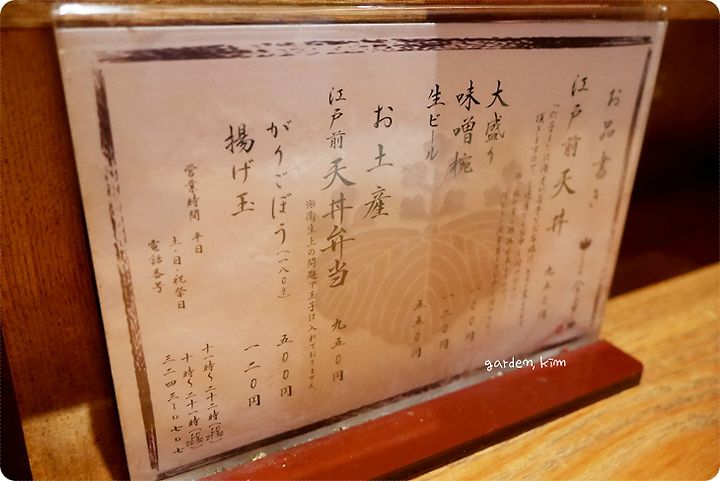 お品書き
江戸前天丼 九五〇円
大盛り 一〇〇円
味噌椀 一二〇円
生ビール 五五〇円
お土産
江戸前天丼弁当 九五〇円
※衛生上の問題で玉子は入れておりません
がりごぼう(一八〇g) 五〇〇円
揚げ玉 一二〇円
営業時間 平日 十一時〜二十二時
土・日・祝祭日 十時〜二十一時
電話番号 三二四三-〇七〇七
gardem, kim